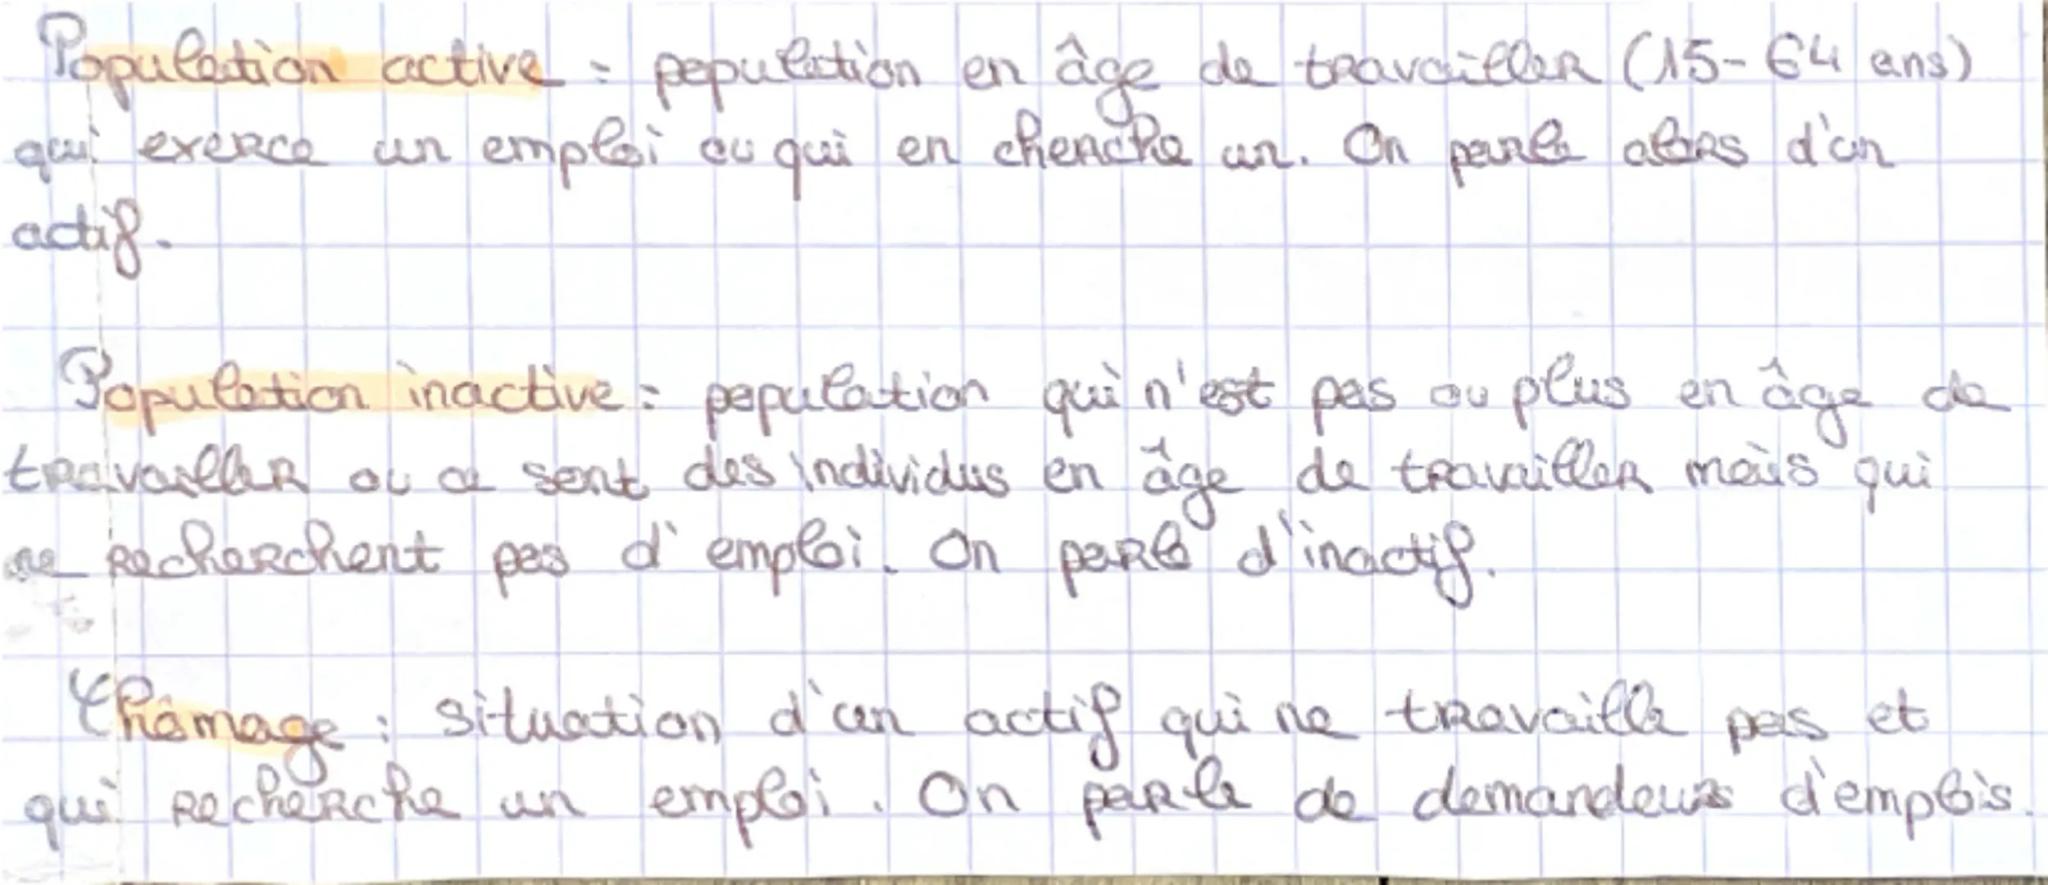 Population active : population en âge de travailler (15-64 ans)
qui exerce un emploi ou qui en cherche un. On parle alors d'un
actif.
Population inactive : population qui n'est pas ou plus en âge de
travailler ou ce sont des individus en âge de travailler mais qui
ne recherchent pas d'emploi. On parle d'inactif.
Chômage : situation d'un actif qui ne travaille pas et
qui recherche un emploi. On parle de demandeurs d'emplois.